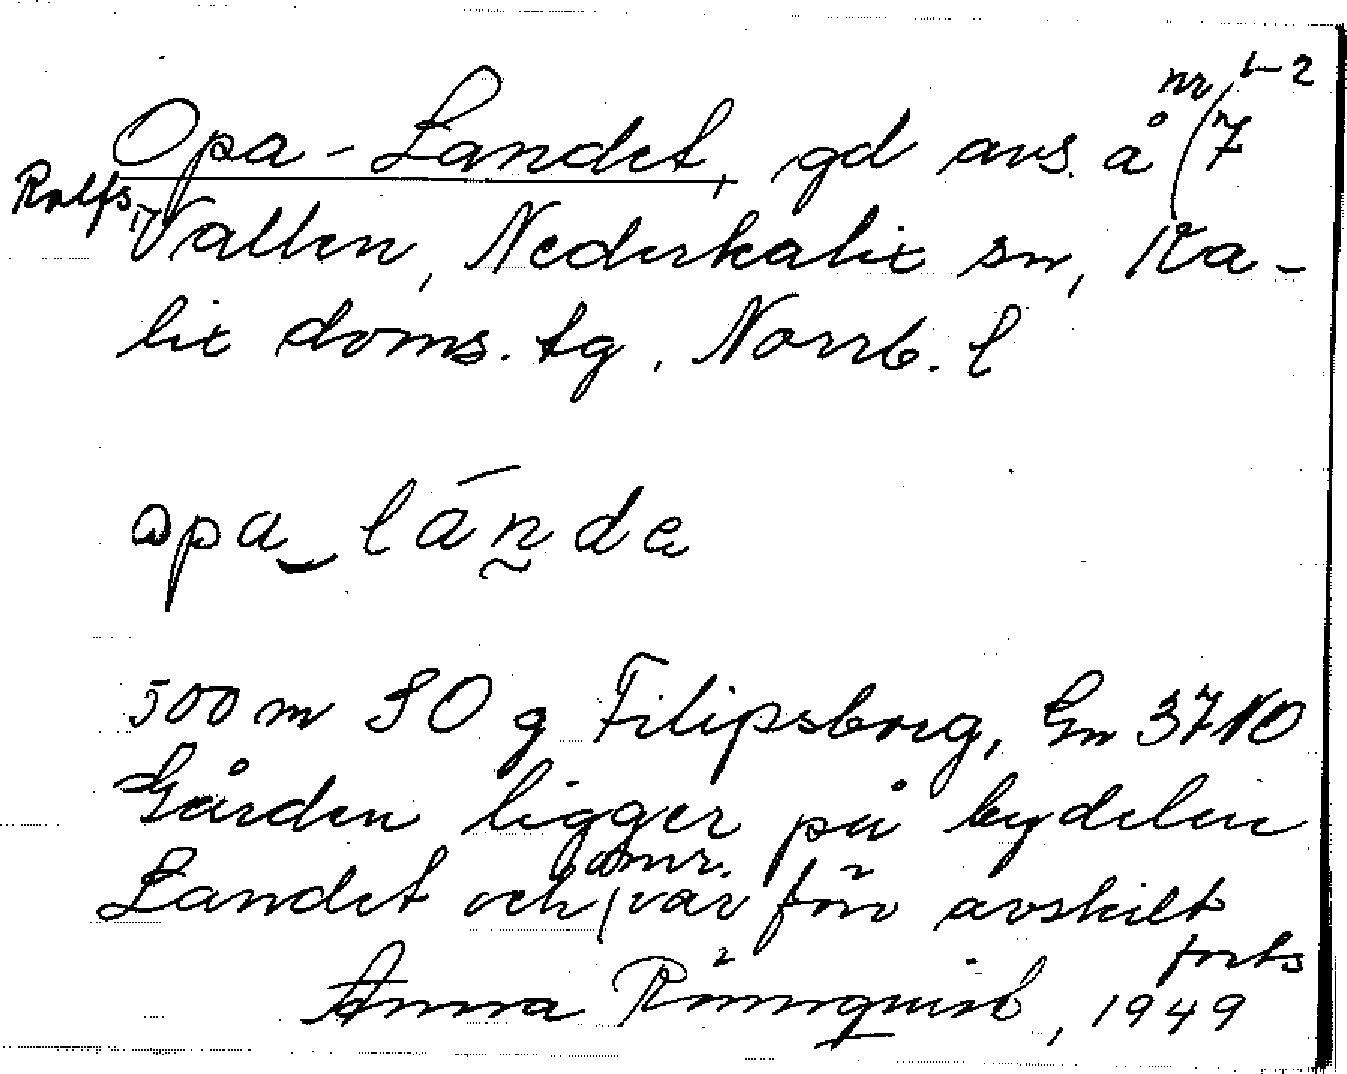 nr 1-2
Opa-Landet, gd avs. å 7
Rolfs
Vallen, Nederkalix sn, Ka-
lix doms. tg, Norrb. l
opa_lánde
500 m SO g Filipsborg, Gm 37 NO
Gården ligger på bydelen
omr.
Landet och var förr avskilt
forts
Anna Rönnquist, 1949